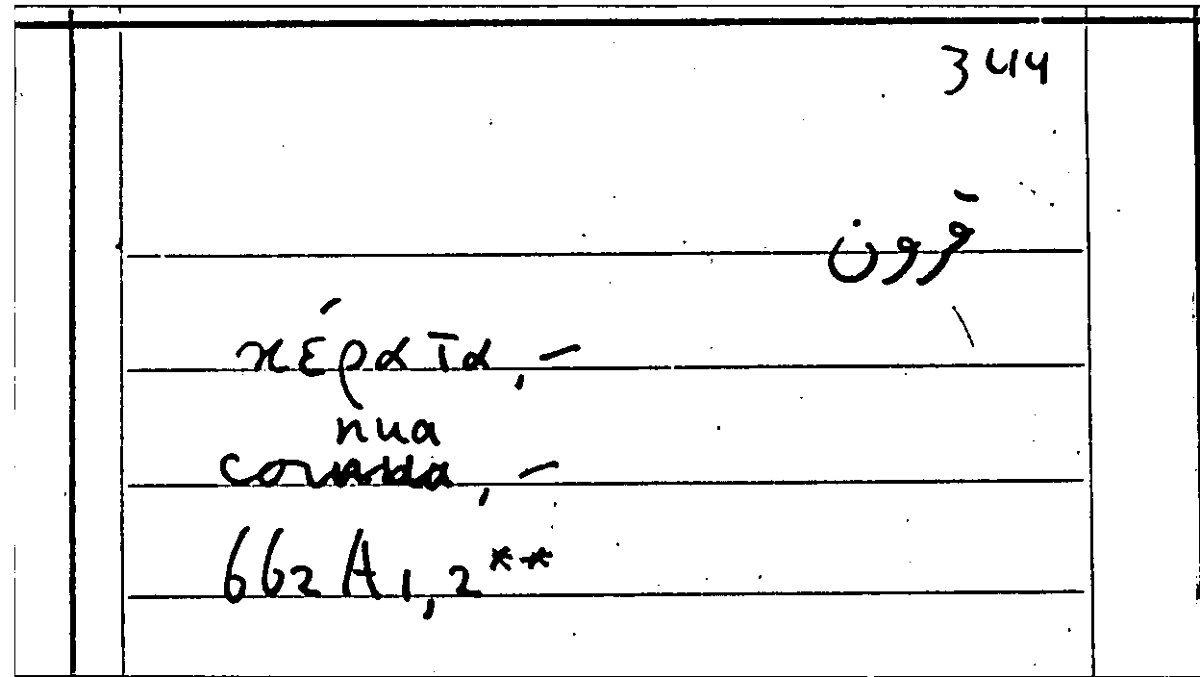 344
قرون
κέρατα, –
nua
cornua, –
662 A1, 2**